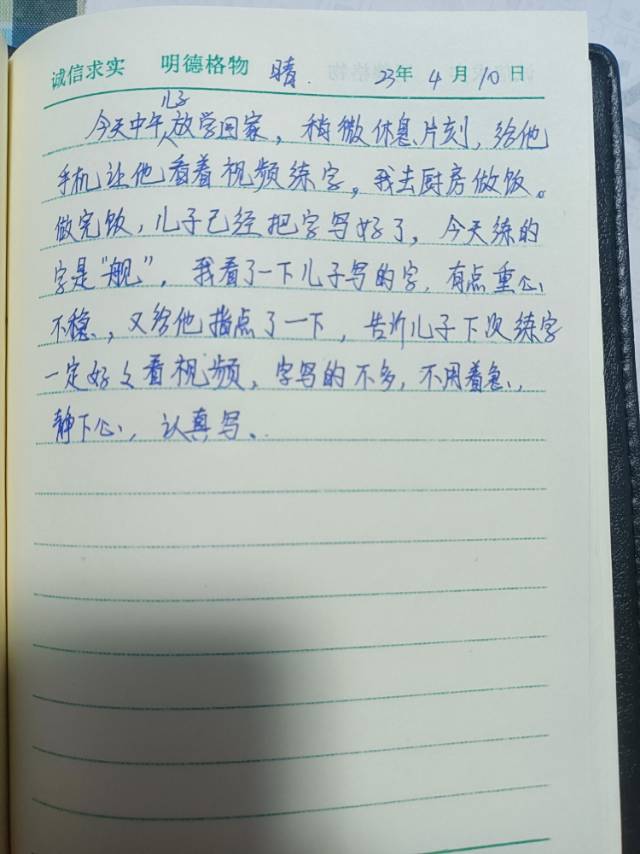 诚信求实 明德格物 晴. 23年4月10日
儿子
今天中午放学回家，稍微休息片刻，给他
手机让他看着视频练字，我去厨房做饭。
做完饭，儿子已经把字写好了，今天练的
字是“舰”，我看了一下儿子写的字，有点重心
不稳，又给他指点了一下，告诉儿子下次练字
一定好好看视频，字写的不多，不用着急，
静下心，认真写、